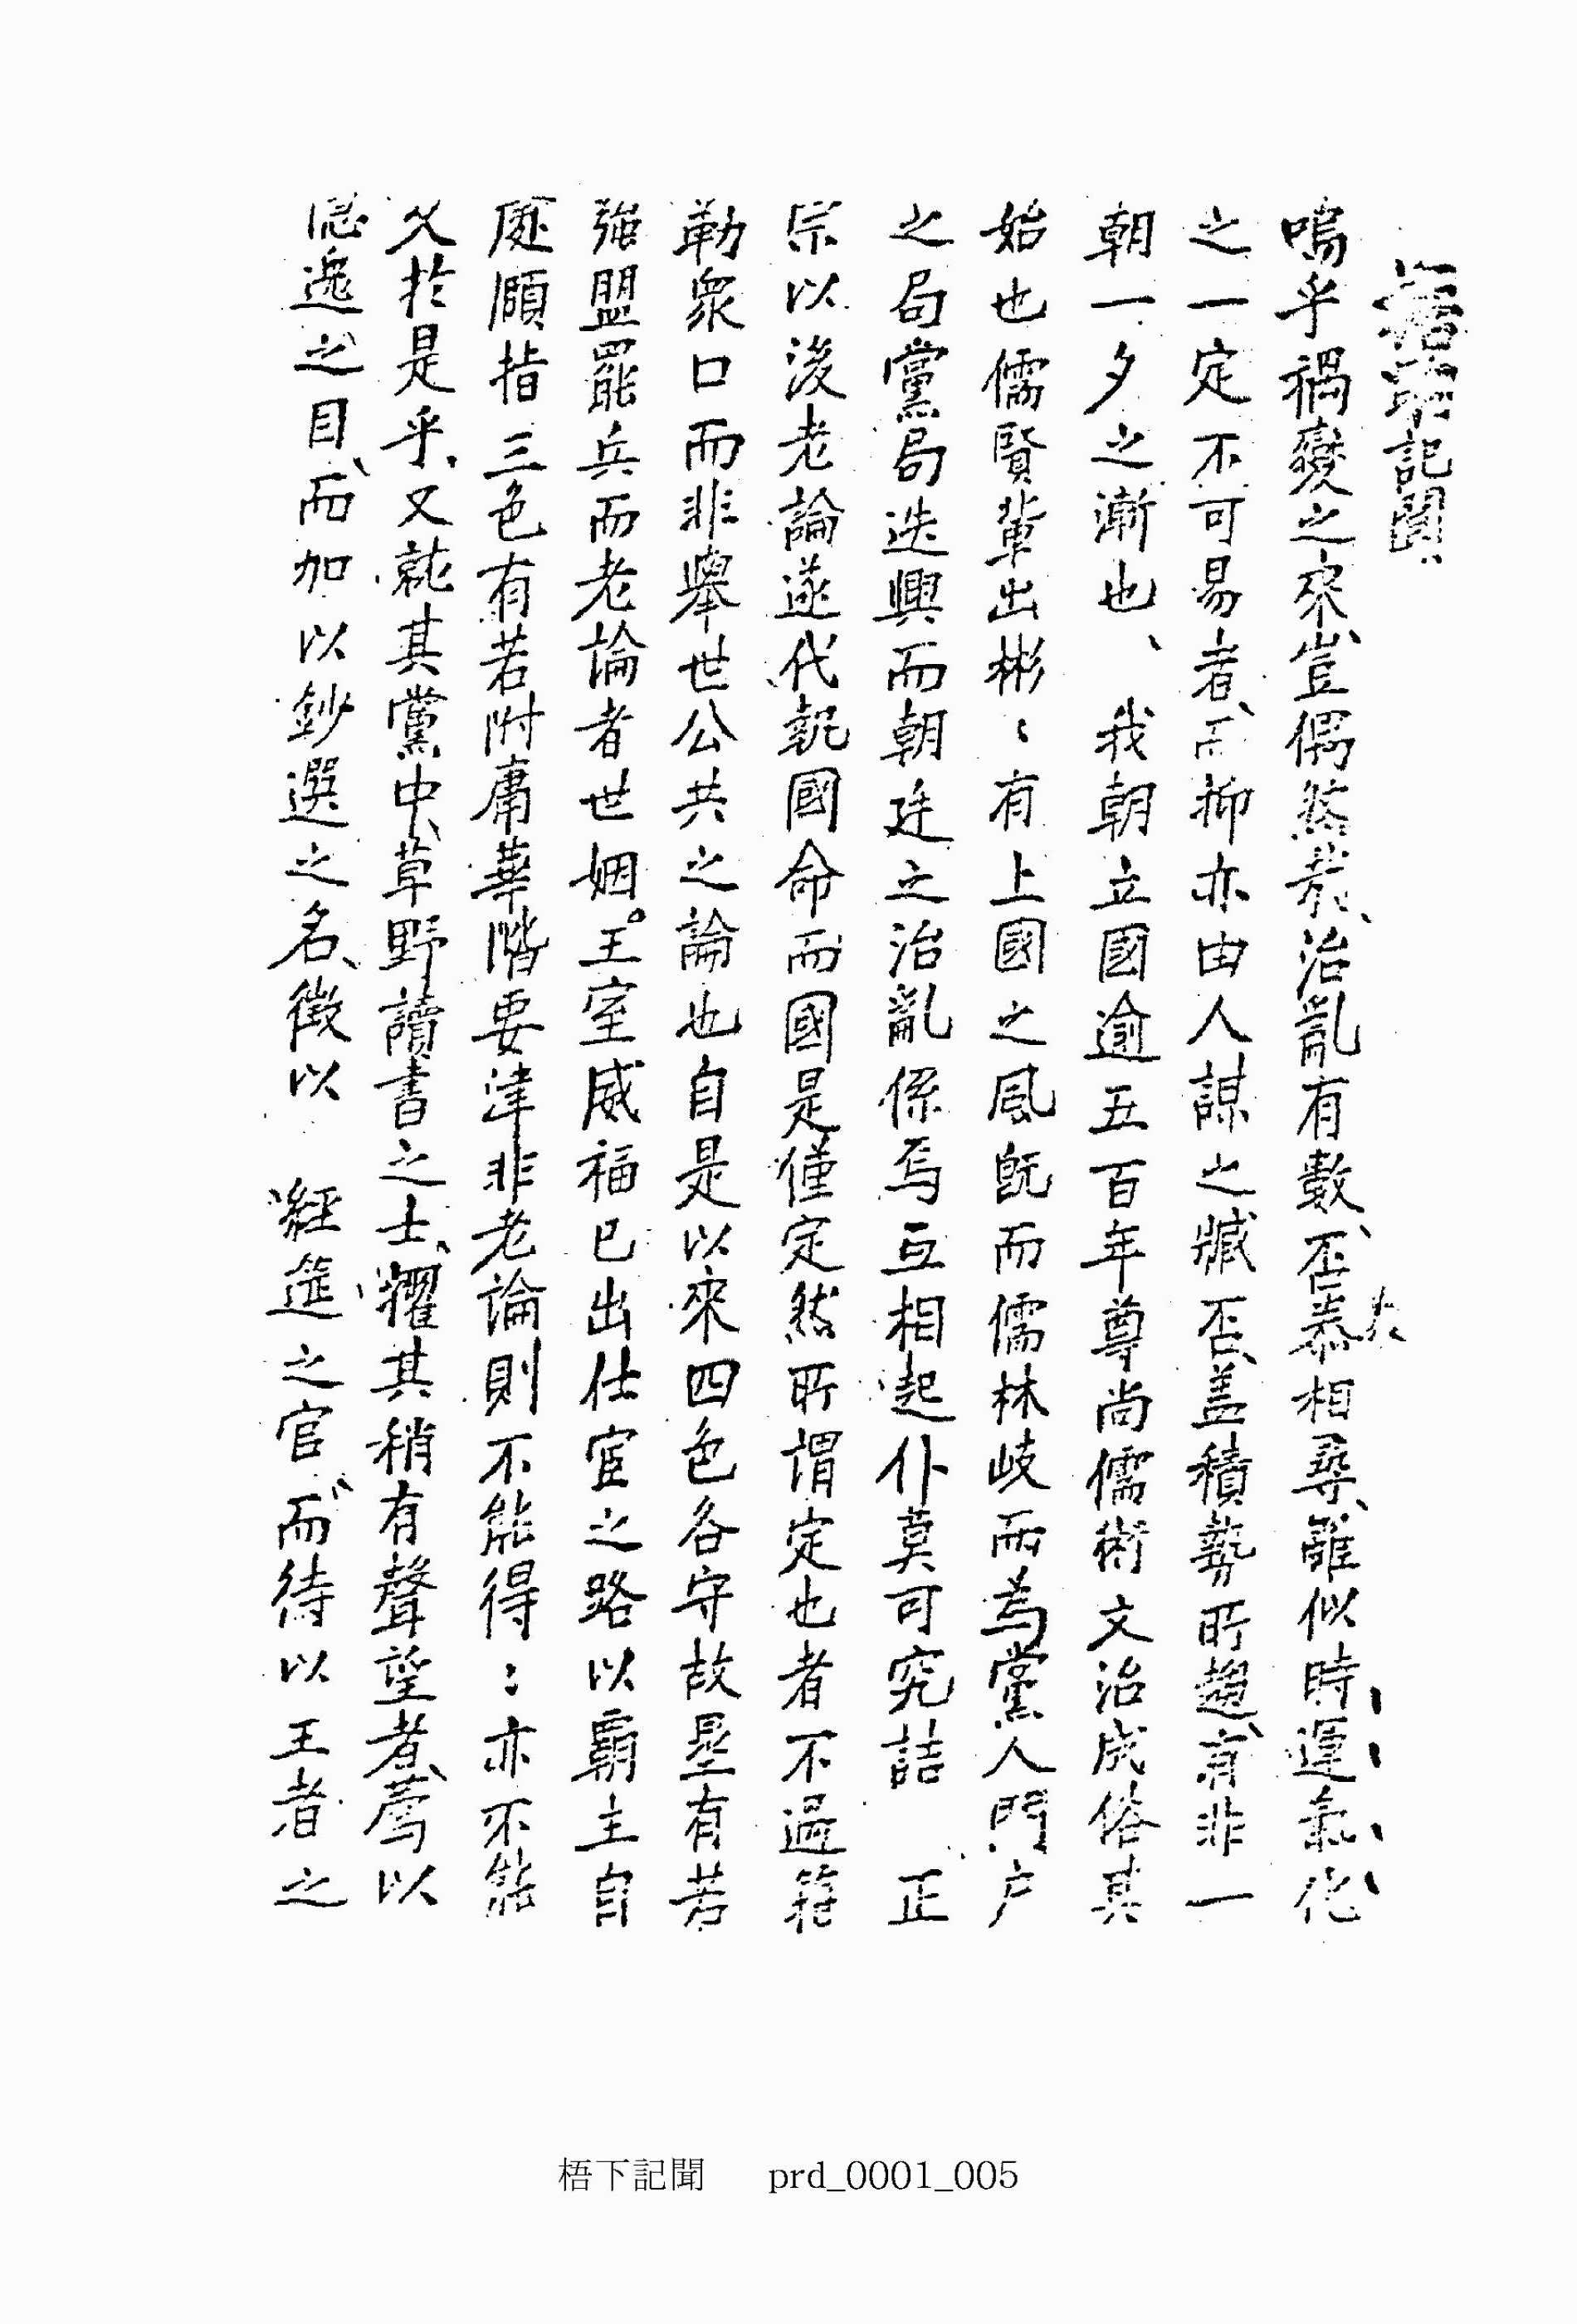 記聞
嗚乎禍變之來豈偶然哉、治亂有數、否泰相尋、雖似時運氣化
之一定不可易者、而抑亦由人謀之臧否、盖積勢所趨、有非一
朝一夕之漸也、 我朝立國逾五百年尊尚儒術文治成俗其
始也儒賢輩出彬〻有上國之風旣而儒林岐而爲黨人門户
之局黨局迭興而朝廷之治亂係焉互相起仆莫可究詰 正
宗以後老論遂代執國命而國是僅定然所謂定也者不過箝
勒衆口而非舉世公共之論也自是以來四色各守故壘有若
强盟罷兵而老論者世姻王室威福已出仕宦之路以霸主自
處頤指三色有若附庸華階要津非老論則不能得〻亦不能
久於是乎、又就其黨中、草野讀書之士、擢其稍有聲望者、薦以
隱逸之目、而加以鈔選之名、徵以 經筵之官、而待以王者之
梧下記聞 prd_0001_005